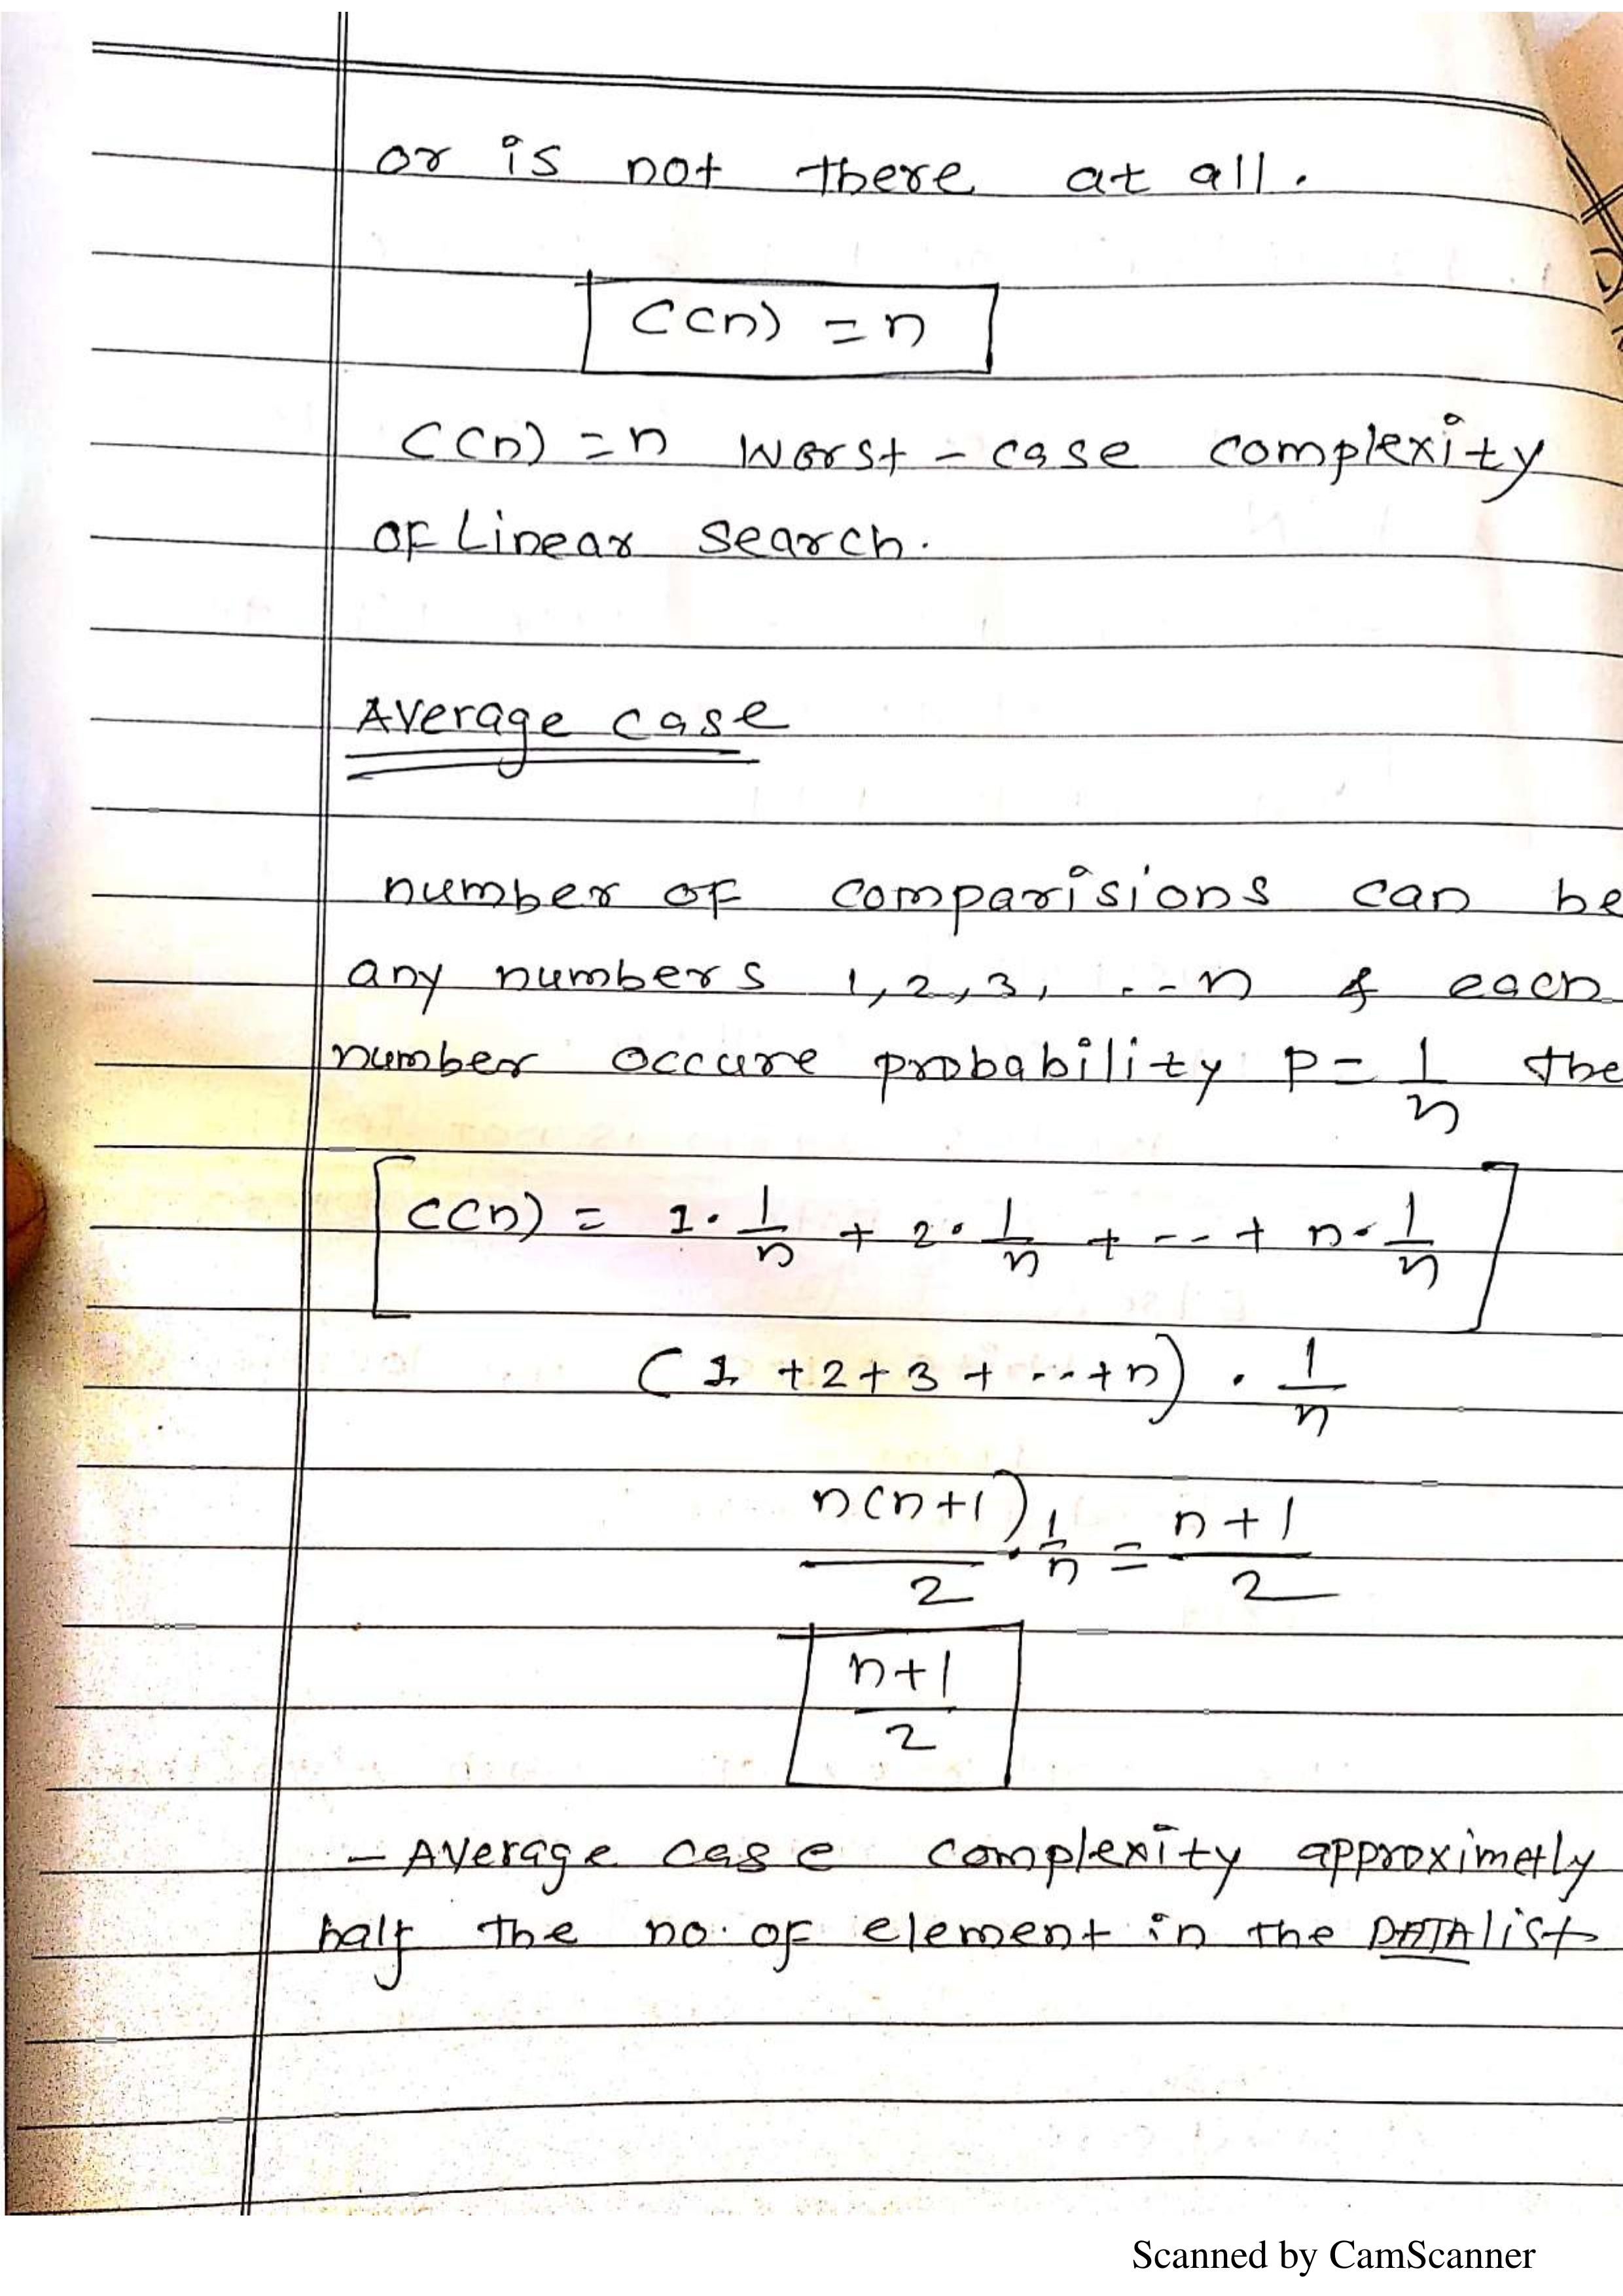 or is not there at all.
C(n) = n
C(n) = n worst - case complexity
of Linear search.
Average case
number of comparisions can be
any numbers 1, 2, 3, . -- n & each
number occure probability P = 1/n the
C(n) = 1 · 1/n + 2 · 1/n + -- + n · 1/n
(1 + 2 + 3 + --- + n) · 1/n
n(n+1)/2 · 1/n = n+1/2
n+1/2
- Average case complexity approximetly
half the no. of element in the DATA list
Scanned by CamScanner